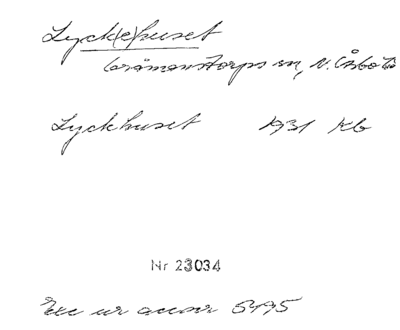 Lyck(e)huset
Gråmanstorps sn, N. Åsbo hd
Lyckhuset 1931 Kb
Nr 23034
Exc ur accnr 5495